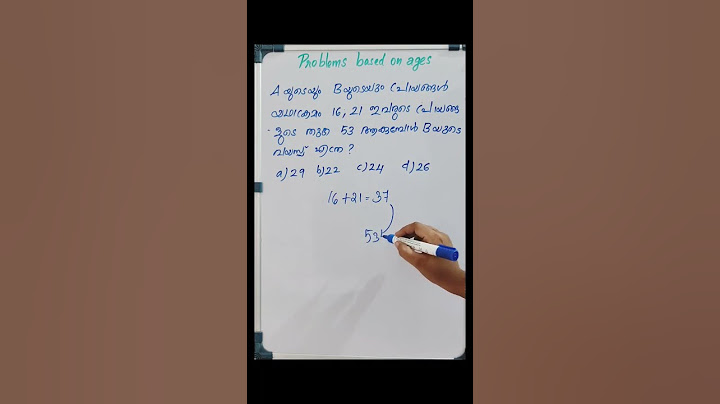 Problems based on ages
A യുടെയും B യുടെയും പ്രായങ്ങൾ
യഥാക്രമം 16, 21 ഇവരുടെ പ്രായങ്ങ
ളുടെ തുക 53 ആകുമ്പോൾ B യുടെ
വയസ്സ് എത്ര?
a) 29 b) 22 c) 24 d) 26
16 + 21 = 37
53